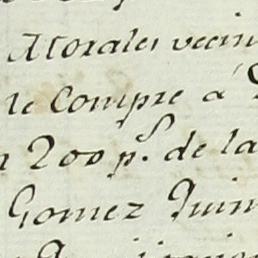 Morales vecin
le Compre a
200 p.s de la
Gomez Quin